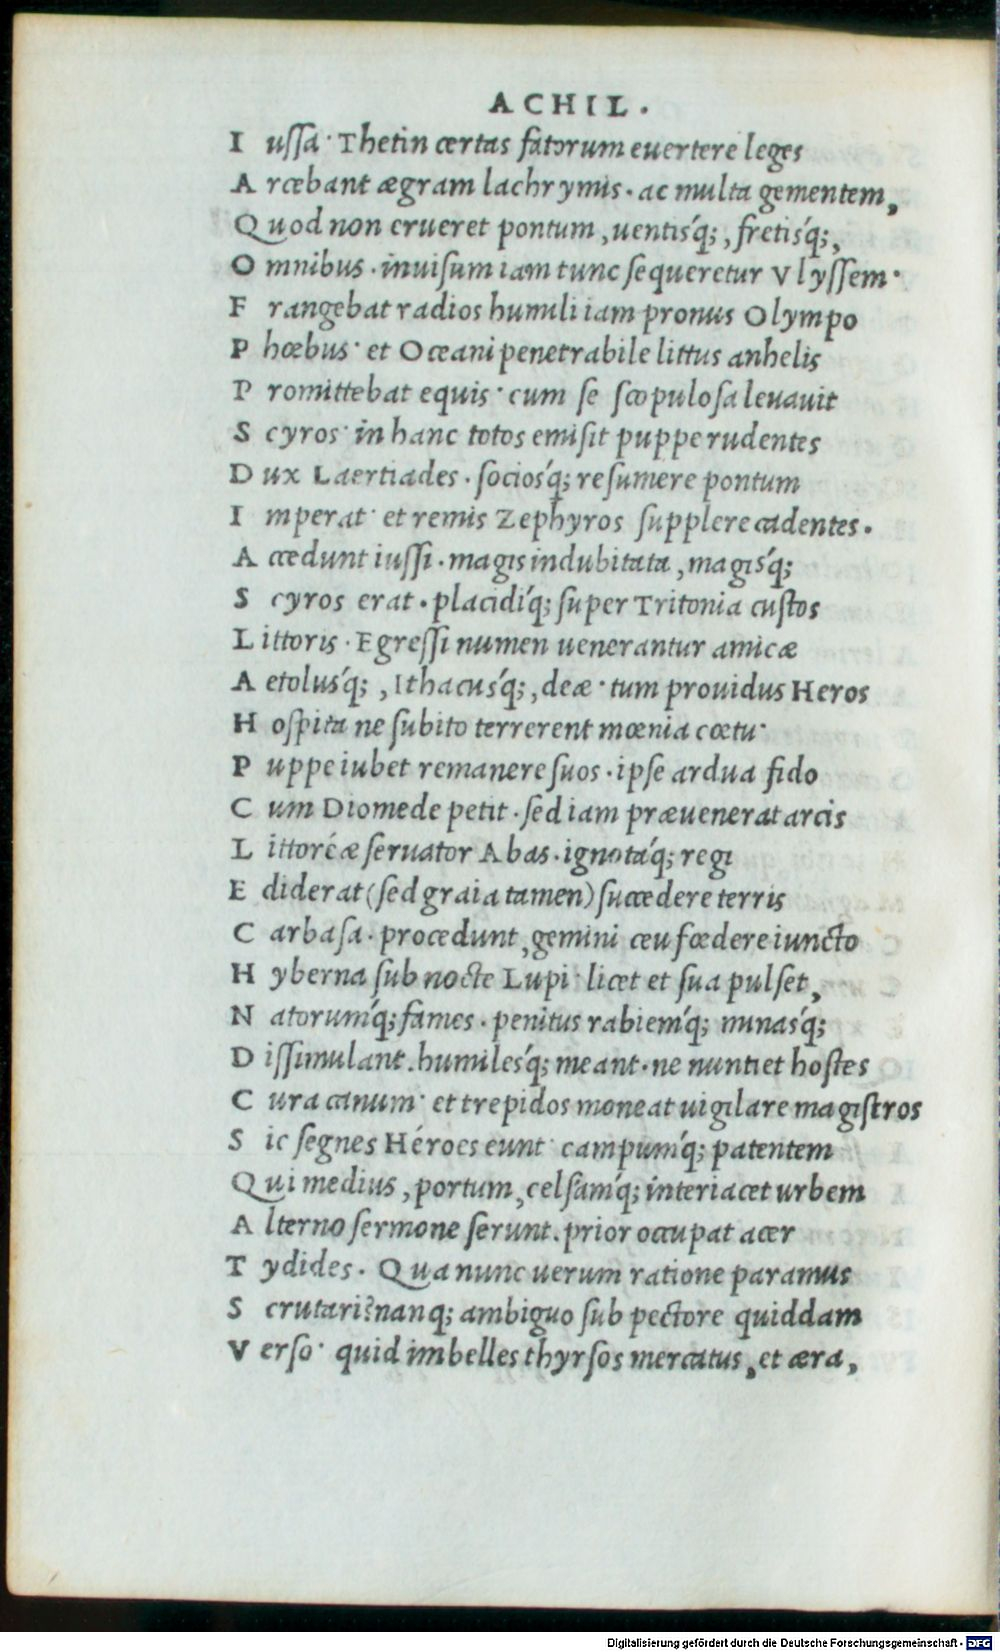 ACHIL.
I uſſa· Thetin certas fatorum euertere leges
A rcebant ægram lachrymis· ac multa gementem,
Quod non erueret pontum, uentisq́;, fretisq́;,
O mnibus· inuiſum iam tunc ſequeretur Vlyſſem·
F rangebat radios humili iam pronus Olympo
P hœbus· et Oceani penetrabile littus anhelis
P romittebat equis· cum se ſcopuloſa leuauit
S cyros· in hanc totos emiſit puppe rudentes
D ux Laertiades· ſociosq́; reſumere pontum
I mperat· et remis Zephyros ſupplere cadentes.
A ccedunt iuſſi· magis indubitata, magisq́;
S cyros erat· placidiq́; ſuper Tritonia cuſtos
L ittoris· Egreſſi numen uenerantur amicæ
A etolusq́;, Ithacusq́;, deæ· tum prouidus Heros
H oſpita ne ſubito terrerent mœnia cœtu·
P uppe iubet remanere ſuos· ipſe ardua fido
C um Diomede petit· ſed iam præuenerat arcis
L ittoréæ ſeruator Abas· ignotaq́; regi
E diderat (ſed graia tamen) ſuccedere terris
C arbaſa· procedunt, gemini ceu fœdere iuncto
H yberna ſub nocte Lupi· licet et ſua pulſet,
N atorumq́; fames· penitus rabiemq́; minasq́;
D iſſimulant. humilesq́; meant· ne nuntiet hoſtes
C ura canum· et trepidos moneat uigilare magiſtros
S ic ſegnes Héroes eunt· campumq́; patentem
Qui medius, portum, celſamq́; interiacet urbem
A lterno ſermone ſerunt. prior occupat acer
T ydides. Qua nunc uerum ratione paramus
S crutari? nanq; ambiguo ſub pectore quiddam
V erſo· quid imbelles thyrſos mercatus, et æra,
Digitalisierung gefördert durch die Deutsche Forschungsgemeinschaft - DFG